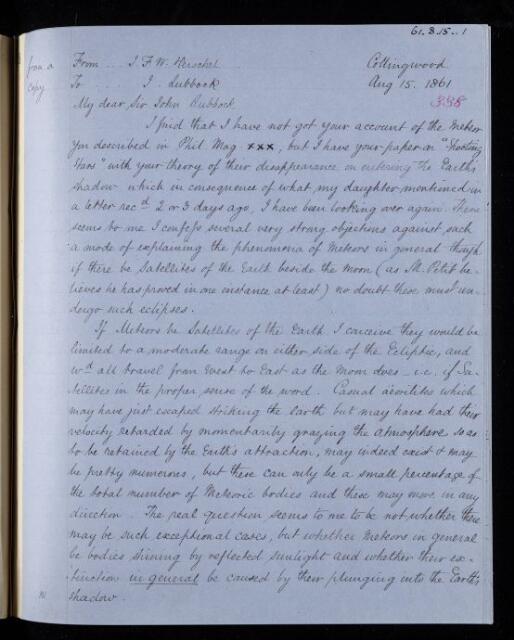 61.8.15..1
from a
copy
From ... J. F. W. Herschel
Collingwood
To ..... J. Lubbock
Aug 15. 1861
338
My dear Sir John Lubbock
I find that I have not got your account of the Meteor
you described in Phil Mag. xxx, but I have your paper on "Shooting
Stars" with your theory of their disappearance on entering the Earth's
shadow which in consequence of what my daughter mentioned in
a letter recd 2 or 3 days ago, I have been looking over again. There
seems to me I confess several very strong objections against such
a mode of explaining the phenomena of Meteors in general though
if there be Satellites of the Earth beside the Moon (as M. Petit be-
lieves he has proved in one instance at least) no doubt these must un-
dergo such eclipses.
If Meteors be Satellites of the Earth I conceive they would be
limited to a moderate range on either side of the Ecliptic, and
wd all travel from West to East as the Moon does - i.e. if Sa-
tellites in the proper sense of the word. Casual aërolites which
may have just escaped striking the Earth but may have had their
velocity retarded by momentarily grazing the atmosphere so as
to be retained by the Earth's attraction, may indeed exist & may
be pretty numerous, but these can only be a small percentage of
the total number of Meteoric bodies and these may move in any
direction. The real question seems to me to be not whether there
may be such exceptional cases, but whether Meteors in general
be bodies shining by reflected sunlight and whether their ex-
tinction in general be caused by their plunging into the Earth's
shadow.